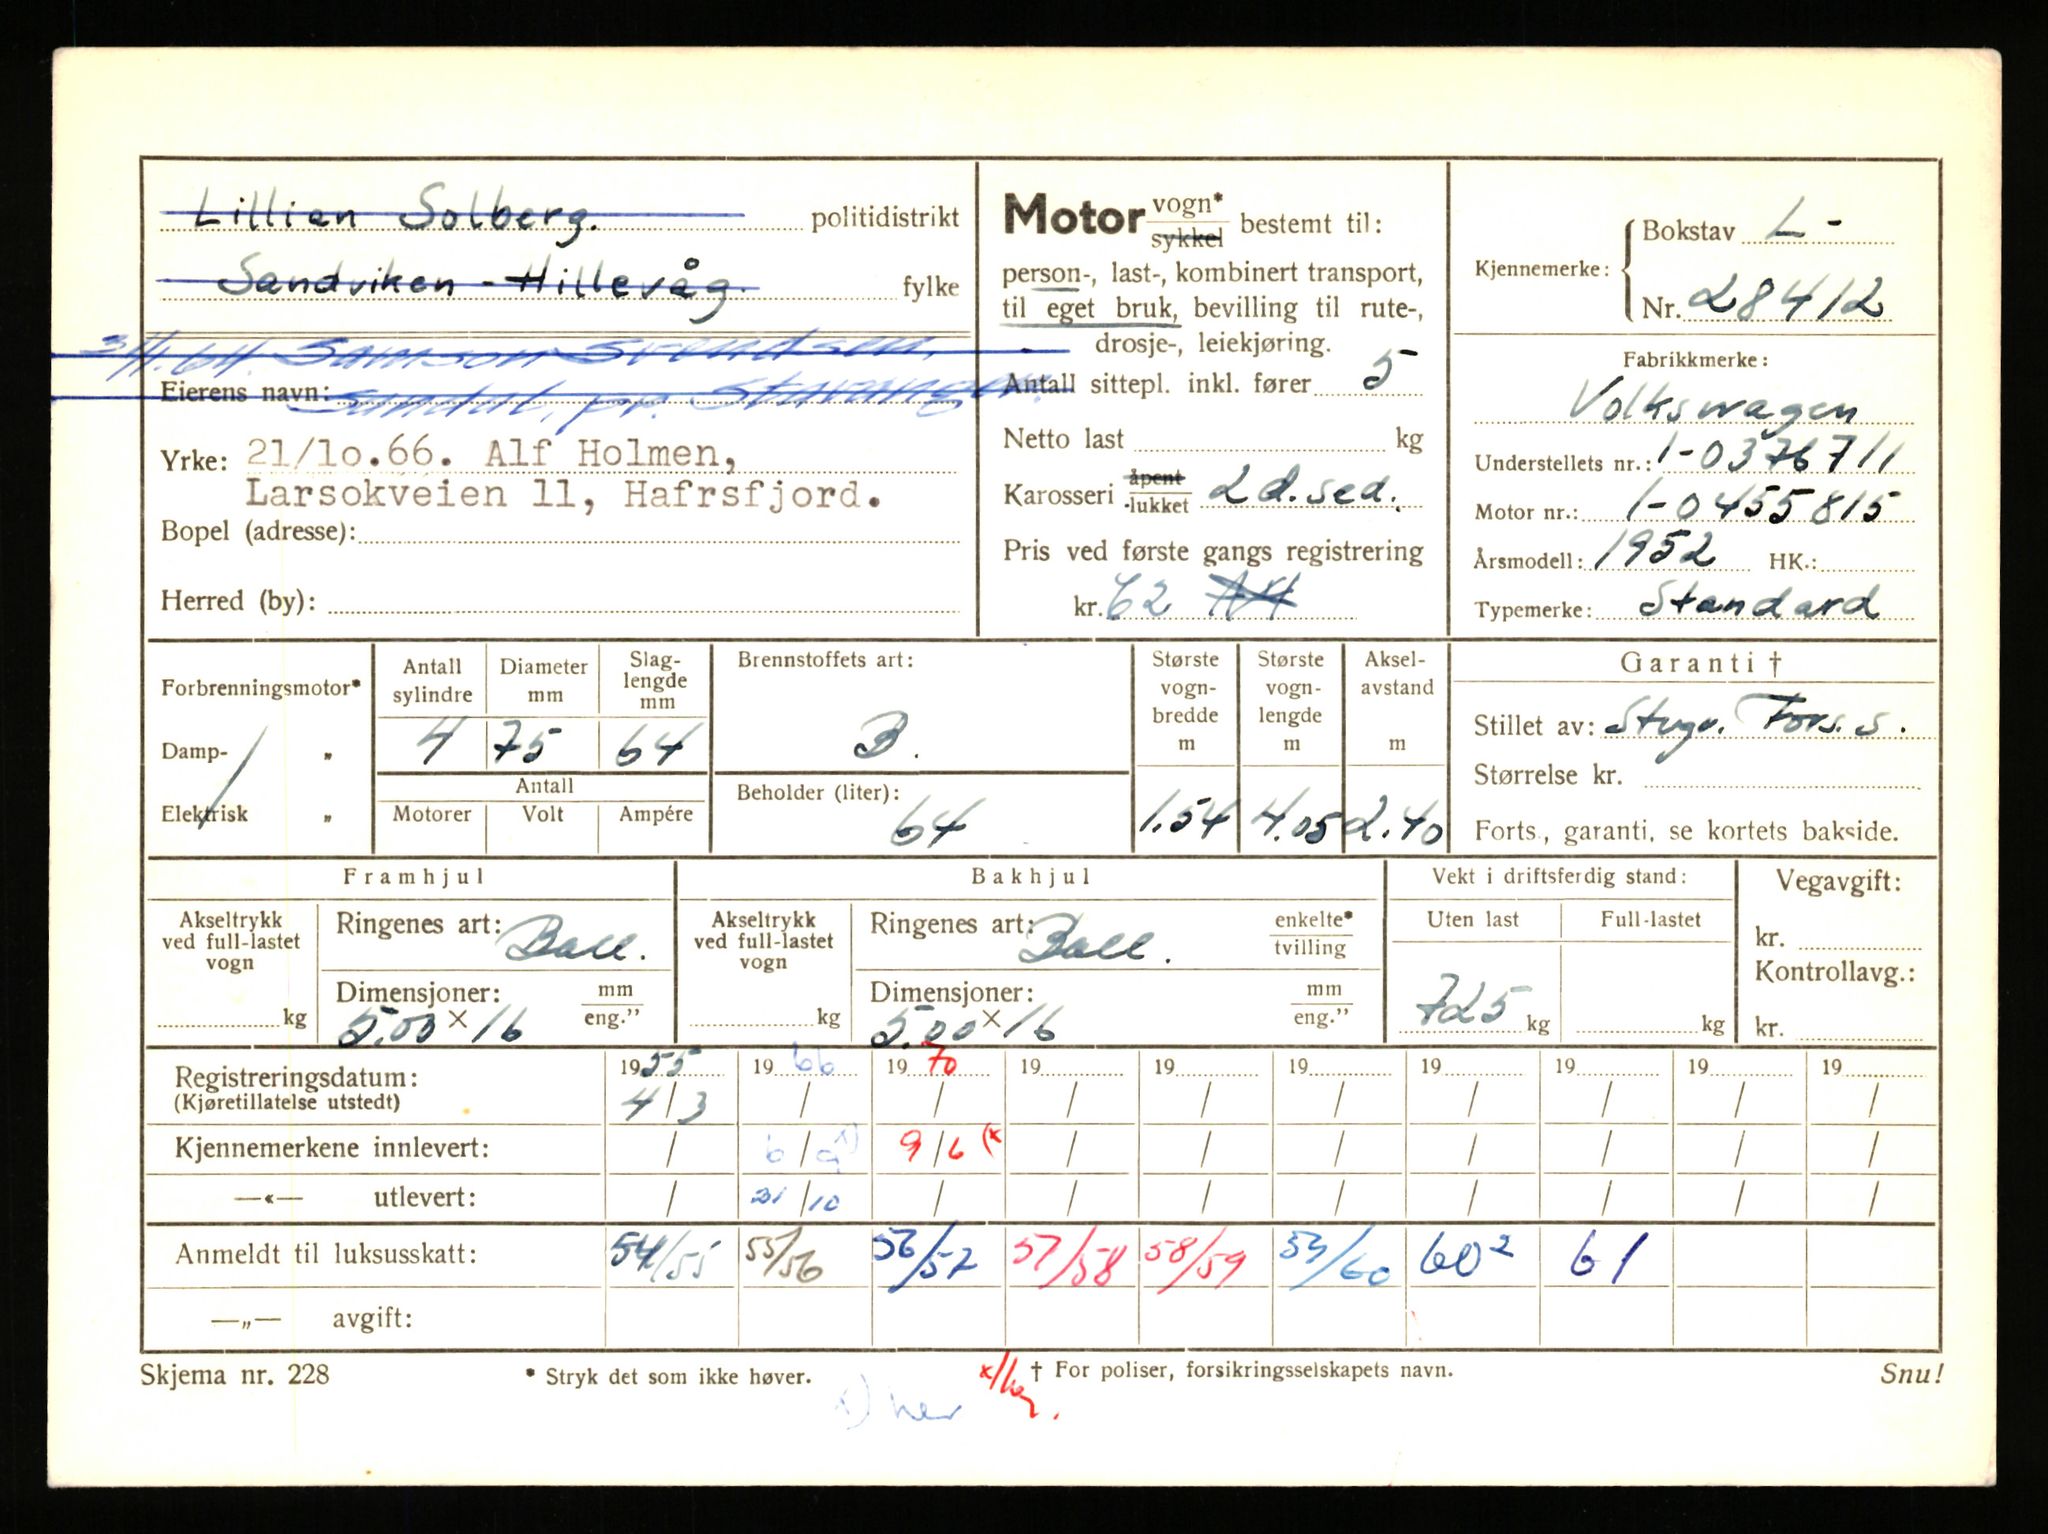 Lillian Solberg. politidistrikt
Sandviken - Hillevåg. fylke
3/1.64. Samson Svendsen,
Eierens navn: Sundal, pr. Stavanger.
Yrke: 21/10.66. Alf Holmen,
Larsokveien 11, Hafrsfjord.
Bopel (adresse):
Herred (by):
Motor vogn* sykkel bestemt til:
person-, last-, kombinert transport,
til eget bruk, bevilling til rute-,
drosje-, leiekjøring.
Antall sittepl. inkl. fører 5
Netto last kg
Karosseri åpent lukket 2 d. sed.
Pris ved første gangs registrering
kr. 62
Kjennemerke: Bokstav L-
Nr. 28412
Fabrikkmerke:
Volkswagen
Understellets nr.: 1-0376711
Motor nr.: 1-0455815
Årsmodell: 1952 HK.:
Typemerke: Standard
Forbrenningsmotor*
Damp- „
Elektrisk „
Antall sylindre 4
Diameter mm 75
Slag-lengde mm 64
Antall
Motorer Volt Ampére
Brennstoffets art:
B.
Beholder (liter):
64
Største vogn-bredde m 1.54
Største vogn-lengde m 4.05
Aksel-avstand m 2.40
Garanti †
Stillet av: Stvgr. Fors.s.
Størrelse kr.
Forts., garanti, se kortets bakside.
Framhjul
Akseltrykk ved full-lastet vogn
kg
Ringenes art: Ball.
Dimensjoner: mm eng."
5.00 x 16
Bakhjul
Akseltrykk ved full-lastet vogn
kg
Ringenes art: Ball. enkelte* tvilling
Dimensjoner: mm eng."
5.00 x 16
Vekt i driftsferdig stand:
Uten last Full-lastet
725 kg kg
Vegavgift:
kr.
Kontrollavg.:
kr.
Registreringsdatum: 1955 1966 1970 19 19 19 19 19 19 19
(Kjøretillatelse utstedt) 4/3 / / / / / / / / /
Kjennemerkene innlevert: / 6/9 x) 9/6 (x / / / / / / /
—«— utlevert: / 21/10 / / / / / / / /
Anmeldt til luksusskatt: 54/55 55/56 56/57 57/58 58/59 59/60 60² 61
—„— avgift:
Skjema nr. 228 * Stryk det som ikke høver. † For poliser, forsikringsselskapets navn. Snu!
x) her